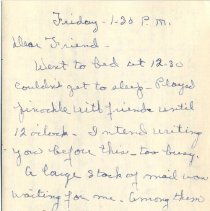 Friday - 1-30 P.M.
Dear Friend -
Went to bed at 12-30
couldn't get to sleep - Played
pinochle with friends until
12 oclock - Intend writing
you before this - too busy.
A large stack of mail was
waiting for me - Among them